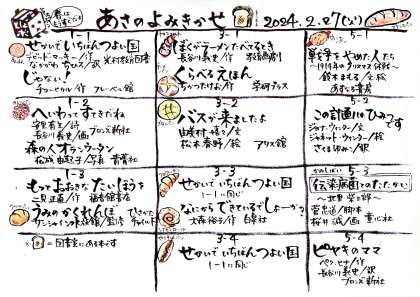 あさのよみきかせ
2024.2.27(火)
1-1
せかいでいちばんつよい国
デビッド・マッキー/作
なかがわちひろ/訳 光村教育図書
じゃない!
チョーヒカル/作 フレーベル館
1-2
へいわってすてきだね
安里有生/詩
長谷川義史/画 ブロンズ新社
森のオランウータン
松成由起子/写真 菁菁社
1-3
もっとおおきなたいほうを
二見正直/作 福音館書店
うみのかくれんぼ
サンシャイン水族館/監修
※ =図書室にあります
3-1
ぼくがラーメンたべてるとき
長谷川義史/作 教育画劇
くらべるえほん
ちかつたけお/作 学研プラス
3-2
バスが来ましたよ
由美村嬉々/文
松本春野/絵 アリス館
3-3
せかいでいちばんつよい国
1-1に同じ
なにからできているでしょーか?
大森裕子/作 白泉社
3-4
せかいでいちばんつよい国
1-1に同じ
5-1
戦争をやめた人たち
-1914年のクリスマス休戦-
鈴木まもる/文・絵
あすなろ書房
5-2
この計画はひみつです
ジョナ・ウィンター/文
ジャネット・ウィンター/絵
さくまゆみこ/訳
5-3
かみしばい
伝染病とのたたかい
菅忠道/脚本
桜井誠/画 童心社
5-4
ピヤキのママ
ペク・ヒナ/作
長谷川義史/訳
ブロンズ新社